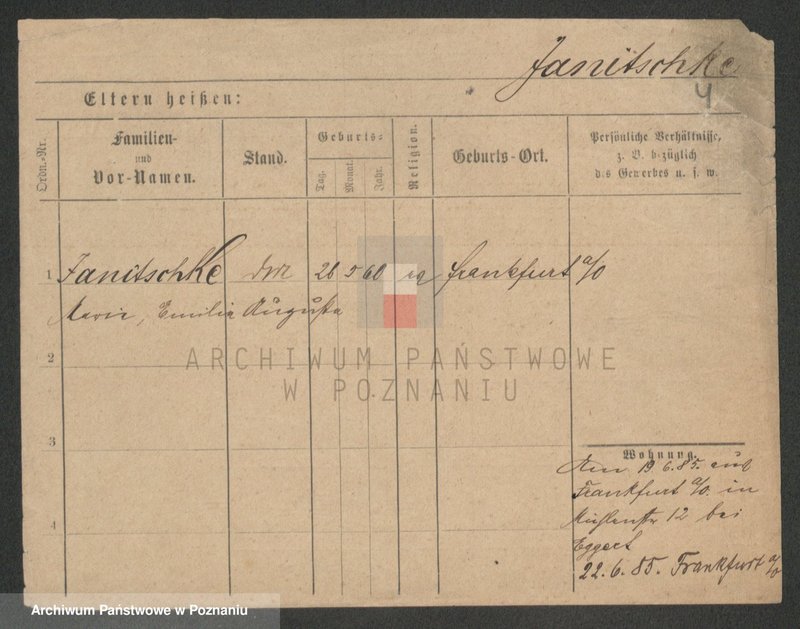 Janitschke
4
Eltern heißen:
Ordn.-Nr.
Familien-
und
Vor-Namen.
Stand.
Geburts-
Tag.
Monat.
Jahr.
Religion.
Geburts-Ort.
Persönliche Verhältnisse,
z. B. bezüglich
des Gewerbes u. s. w.
1 Janitschke 26 5 60 Frankfurt a/O
Marie, Emilie Augusta
2
ARCHIWUM PAŃSTWOWE
W POZNANIU
3
Wohnung.
19.6.85. aus
Frankfurt a/O. in
Mühlenstr 12 bei
4
Eggert
22.6.85. Frankfurt a/O
Archiwum Państwowe w Poznaniu